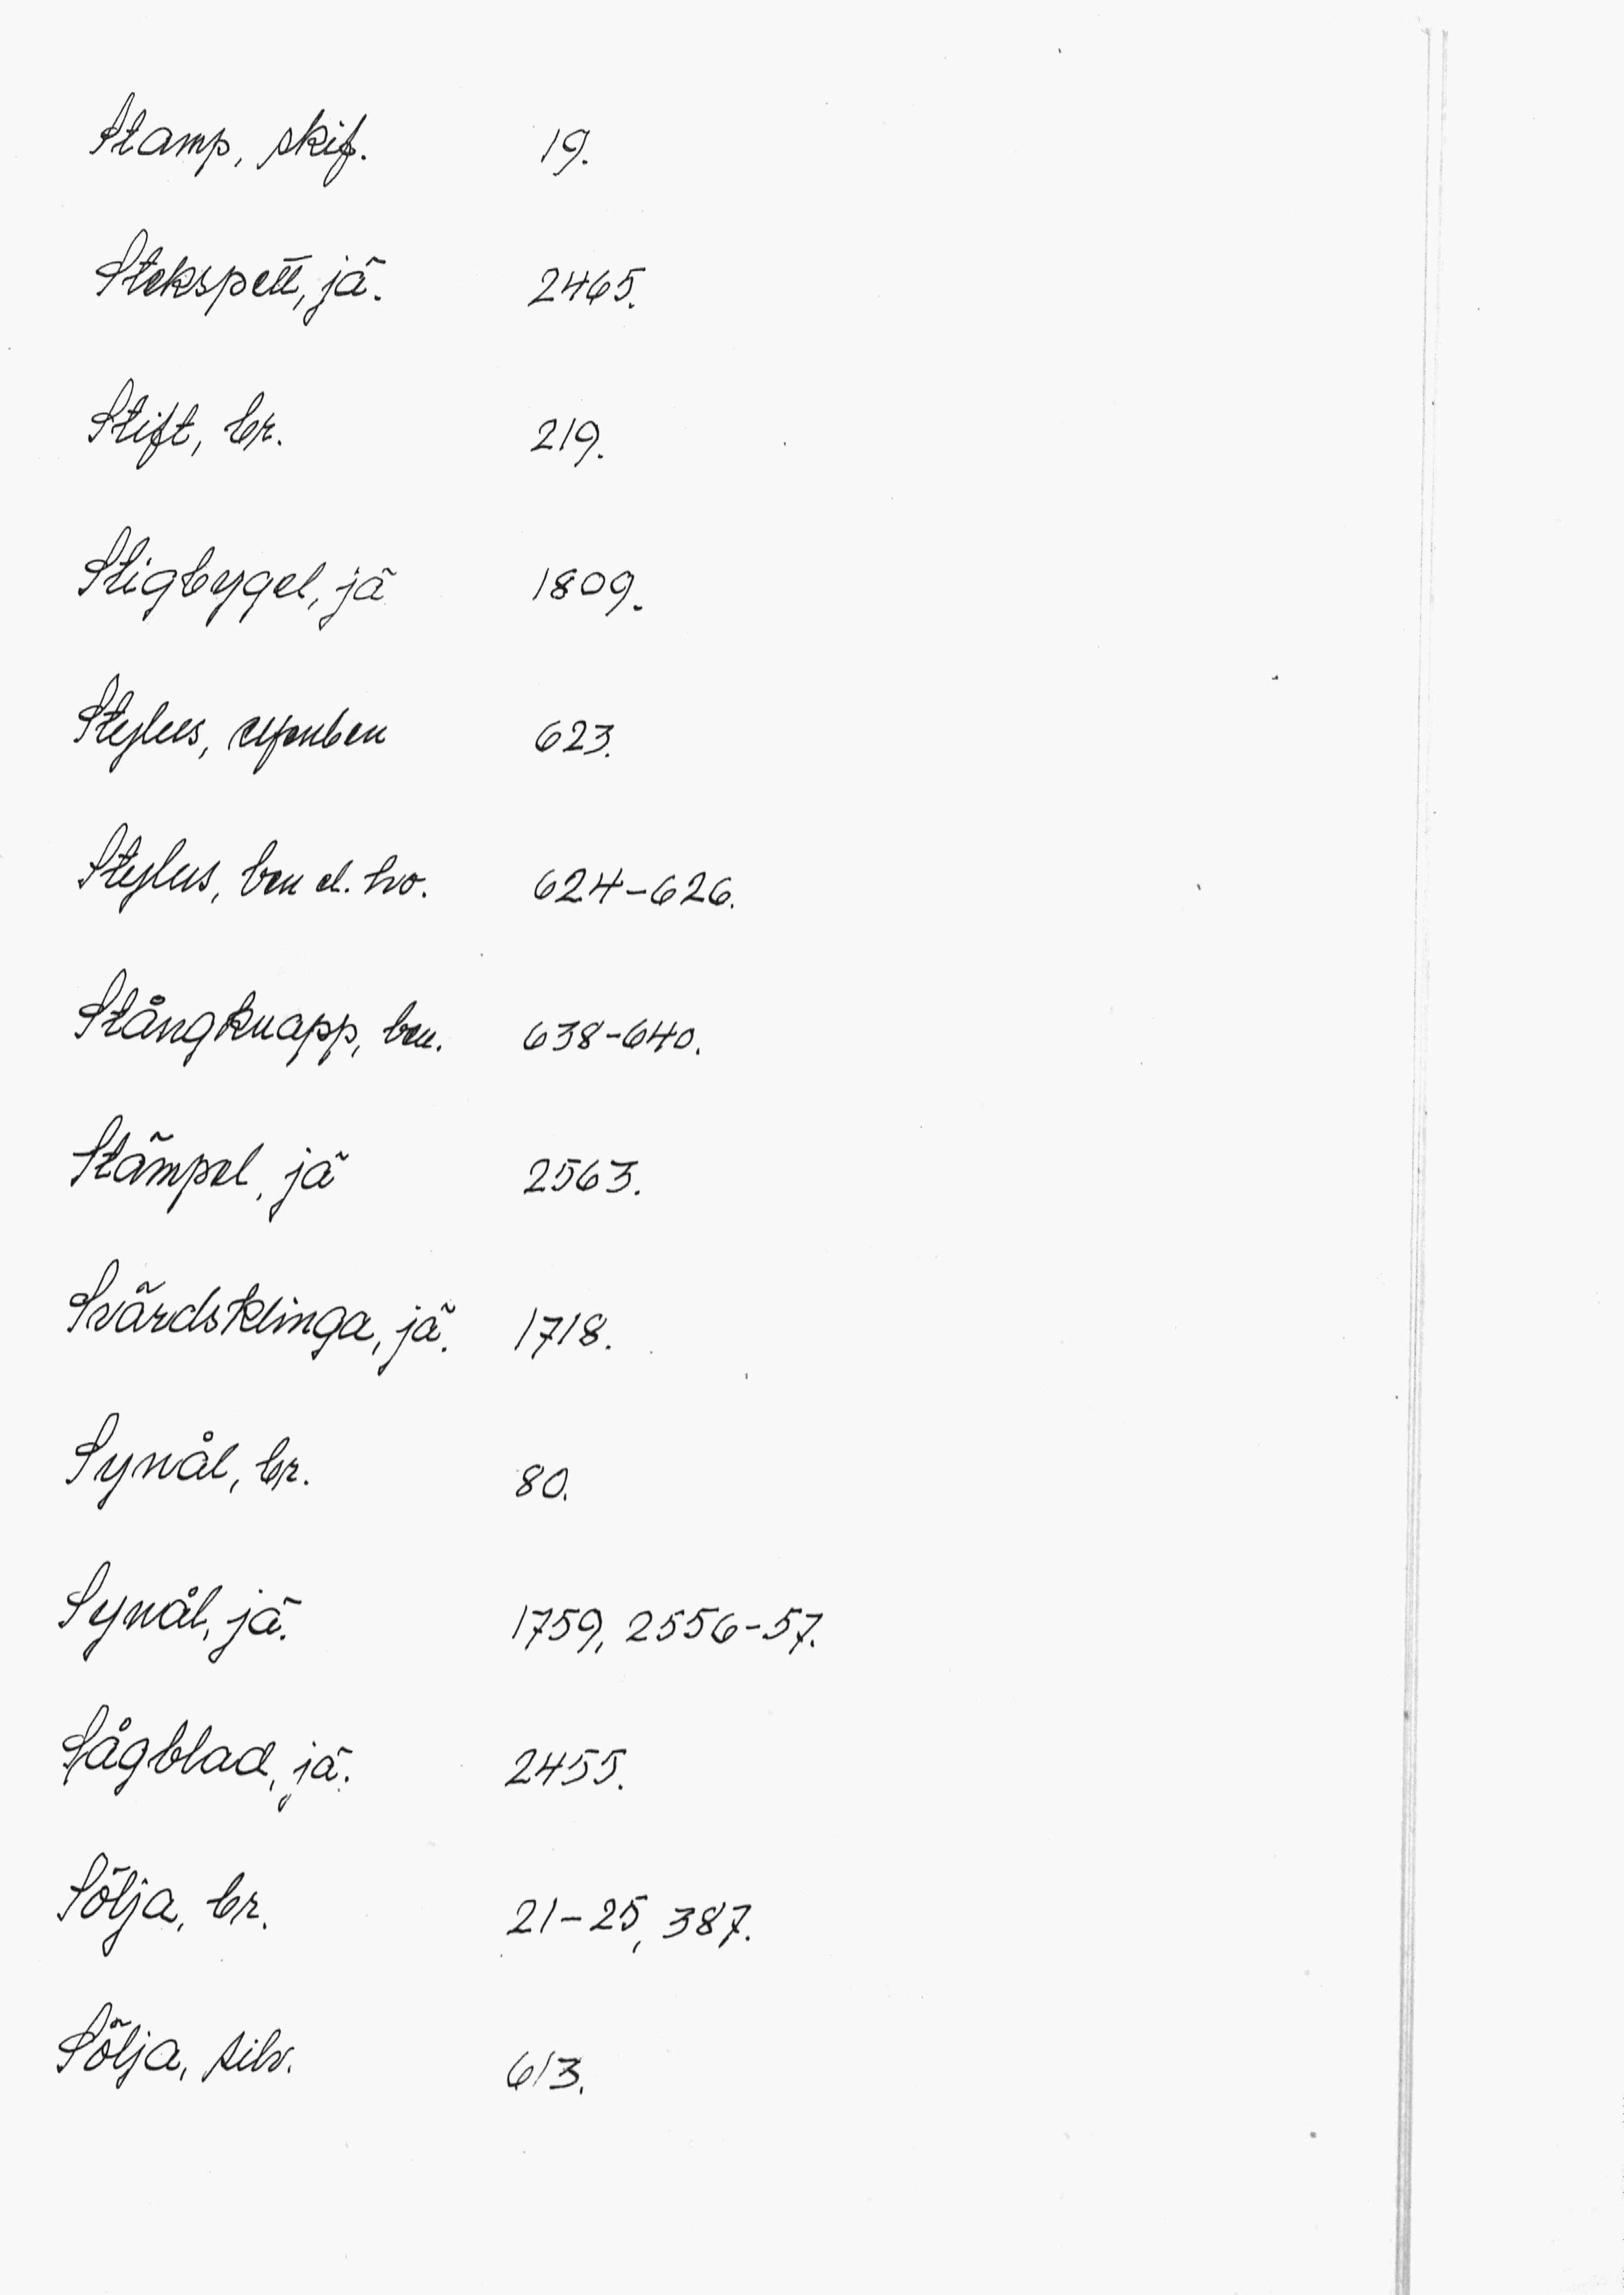 Stamp, skif. 19.
Stekspett, jä. 2465.
Stift, br. 219.
Stigbygel, jä 1809.
Stylus, elfenben 623.
Stylus, ben el. ho. 624-626.
Stångknapp, ben. 638-640.
Stämpel, jä 2563.
Svärdsklinga, jä. 1718.
Synål, br. 80.
Synål, jä. 1759, 2556-57.
Sågblad, jä. 2455.
Sölja, br. 21-25, 387.
Sölja, silv. 613.